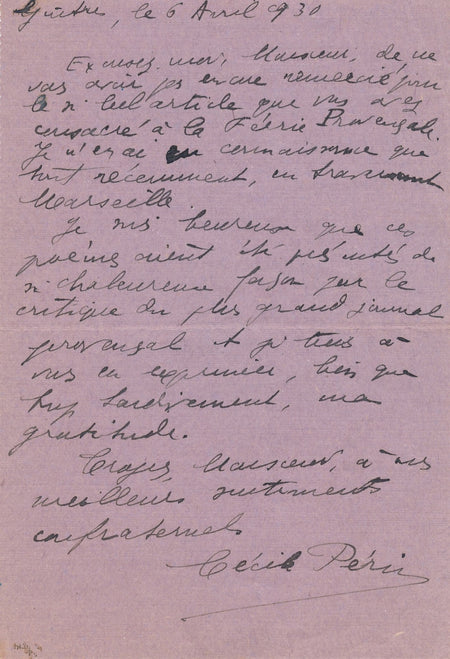 le 6 Avril 1930
Excusez-moi, Monsieur, de ne
vous avoir pas encore remercié pour
le si bel article que vous avez
consacré à la Féerie Provençale.
Je n'en ai eu connaissance que
tout récemment, en traversant
Marseille.
Je suis heureuse que ces
poèmes aient été présentés de
si chaleureuse façon par le
critique du plus grand journal
provençal et je tiens à
vous en exprimer, bien que
trop tardivement, ma
gratitude.
Croyez, Monsieur, à mes
meilleurs sentiments
confraternels
Cécile Périn